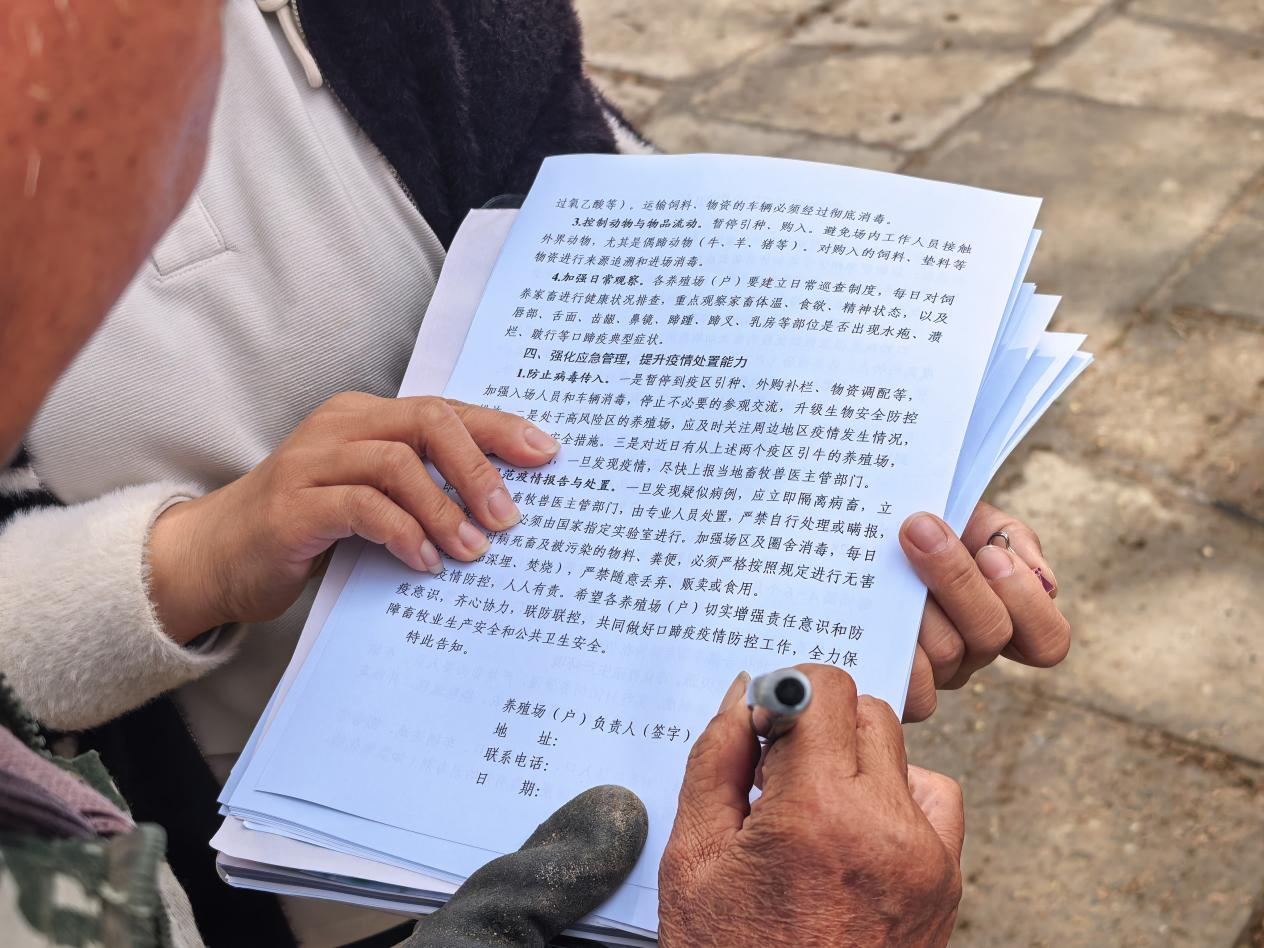 过氧乙酸等）。运输饲料、物资的车辆必须经过彻底消毒。
3.控制动物与物品流动。暂停引种、购入。避免场内工作人员接触
外界动物，尤其是偶蹄动物（牛、羊、猪等）。对购入的饲料、垫料等
物资进行来源追溯和进场消毒。
4.加强日常观察。各养殖场（户）要建立日常巡查制度，每日对饲
养家畜进行健康状况排查，重点观察家畜体温、食欲、精神状态，以及
唇部、舌面、齿龈、鼻镜、蹄踵、蹄叉、乳房等部位是否出现水疱、溃
烂、跛行等口蹄疫典型症状。
四、强化应急管理，提升疫情处置能力
1.防止病毒传入。一是暂停到疫区引种、外购补栏、物资调配等，
加强入场人员和车辆消毒，停止不必要的参观交流，升级生物安全防控
二是处于高风险区的养殖场，应及时关注周边地区疫情发生情况，
安全措施。三是对近日有从上述两个疫区引牛的养殖场，
，一旦发现疫情，尽快上报当地畜牧兽医主管部门。
范疫情报告与处置。一旦发现疑似病例，应立即隔离病畜，立
即 畜牧兽医主管部门，由专业人员处置，严禁自行处理或瞒报，
必须由国家指定实验室进行。加强场区及圈舍消毒，每日
病死畜及被污染的物料、粪便，必须严格按照规定进行无害
深埋、焚烧），严禁随意丢弃、贩卖或食用。
疫情防控，人人有责。希望各养殖场（户）切实增强责任意识和防
疫意识，齐心协力，联防联控，共同做好口蹄疫疫情防控工作，全力保
障畜牧业生产安全和公共卫生安全。
特此告知。
养殖场（户）负责人（签字）
地 址：
联系电话：
日 期：